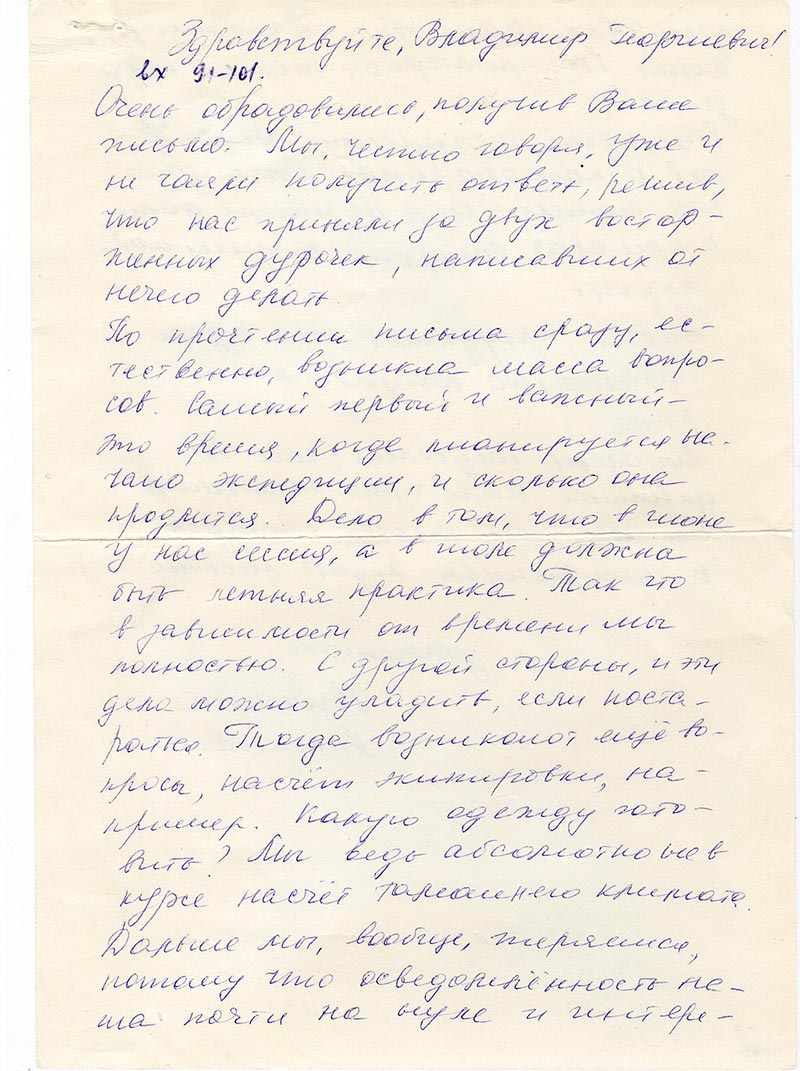 Здравствуйте, Владимир Георгиевич!
вх 91-101.
Очень обрадовались, получив Ваше
письмо. Мы, честно говоря, уже и
не чаяли получить ответа, решив,
что нас приняли за двух востор-
женных дурочек, написавших от
нечего делать.
По прочтении письма сразу, ес-
тественно, возникла масса вопро-
сов. Самый первый и важный –
это время, когда планируется на-
чало экспедиции, и сколько она
продлится. Дело в том, что в июне
у нас сессия, а в июле должна
быть летняя практика. Так что
в зависимости от времени мы
полностью. С другой стороны, и эти
дела можно уладить, если поста-
раться. Тогда возникают ещё во-
просы, насчёт экипировки, на-
пример. Какую одежду гото-
вить? Мы ведь абсолютно не в
курсе насчёт тамошнего климата.
Дальше мы, вообще, теряемся,
потому что осведомлённость на-
ша почти на нуле и интере-